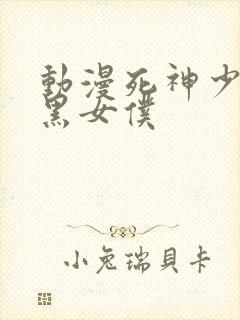 動漫死神少
黑女僕
小兔瑞貝卡